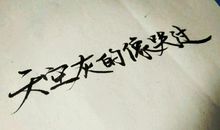 天空灰的像哭过